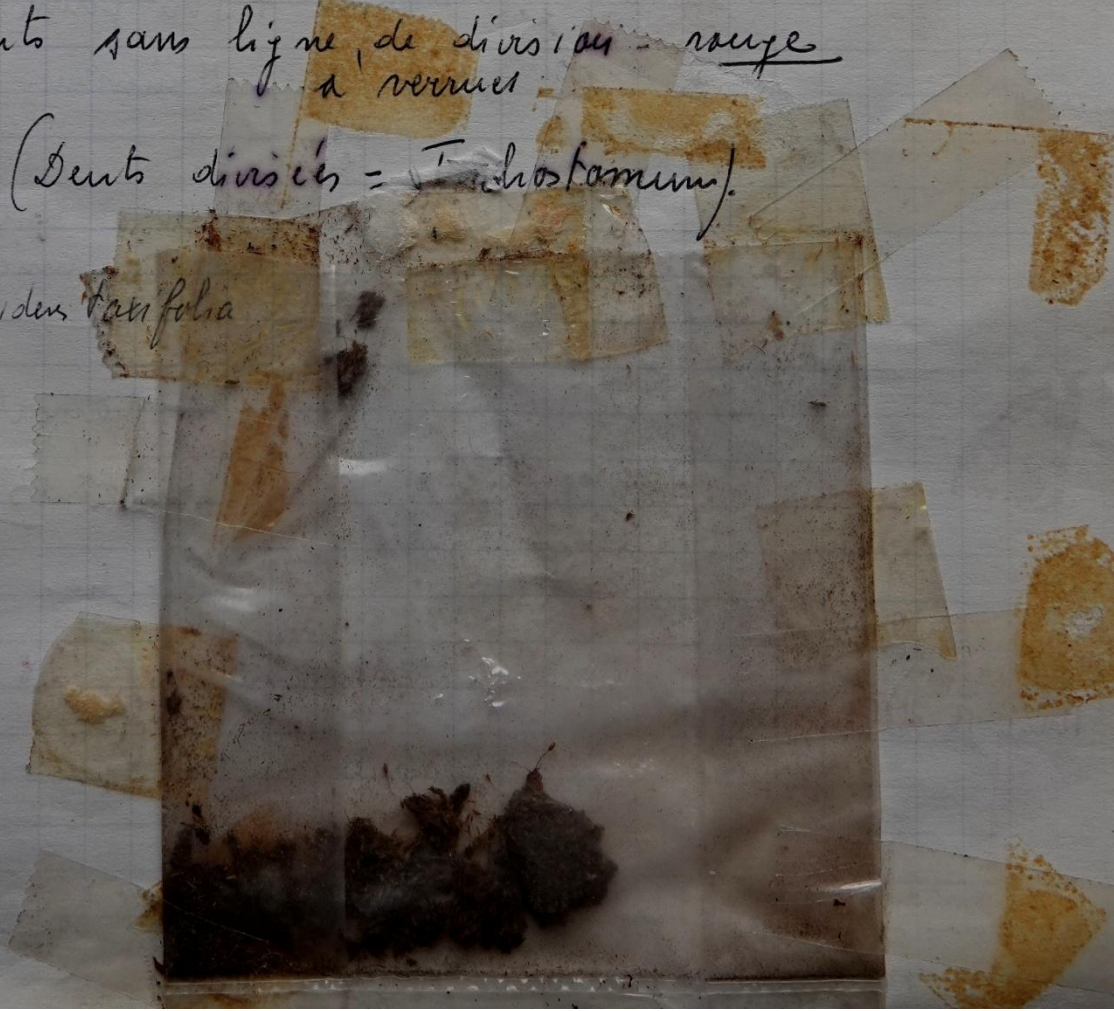 nts sans ligne de division - rouge
à verrues
(Dents divisées = hostomum).
idens taxifolia